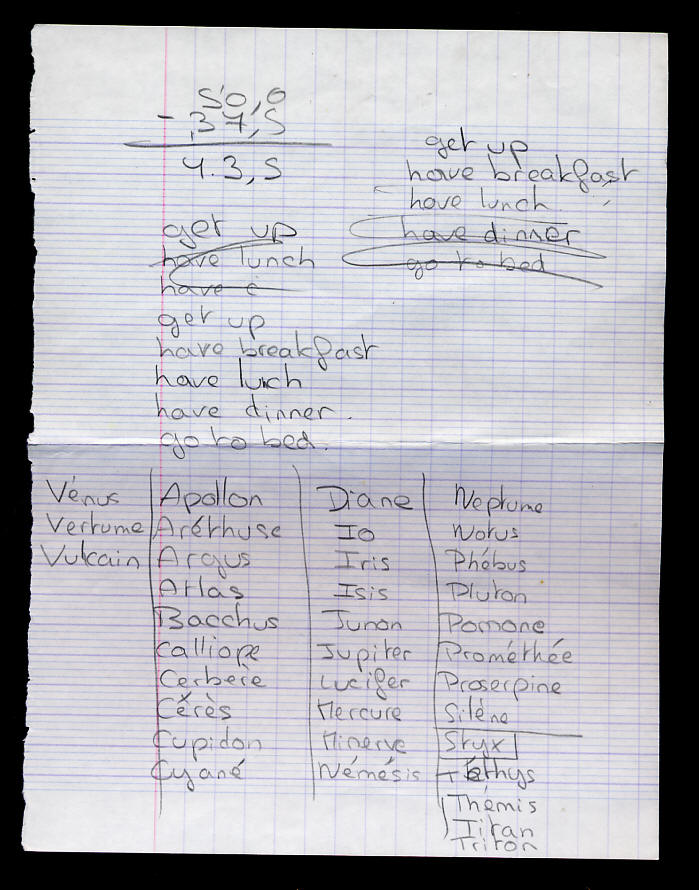 50,0
- 37,5
4.3,5
get up
have breakfast
have lunch
have dinner
go to bed
get up
have lunch
have c
get up
have breakfast
have lunch
have dinner.
go to bed.
Vénus
Vertume
Vulcain
Apollon
Aréthuse
Argus
Atlas
Bacchus
Calliope
Cerbère
Cérès
Cupidon
Cyané
Diane
Io
Iris
Isis
Junon
Jupiter
Lucifer
Mercure
Minerve
Némésis
Neptume
Notus
Phébus
Pluton
Pomone
Prométhée
Proserpine
Siléne
Styx
Téthys
Thémis
Titan
Triton